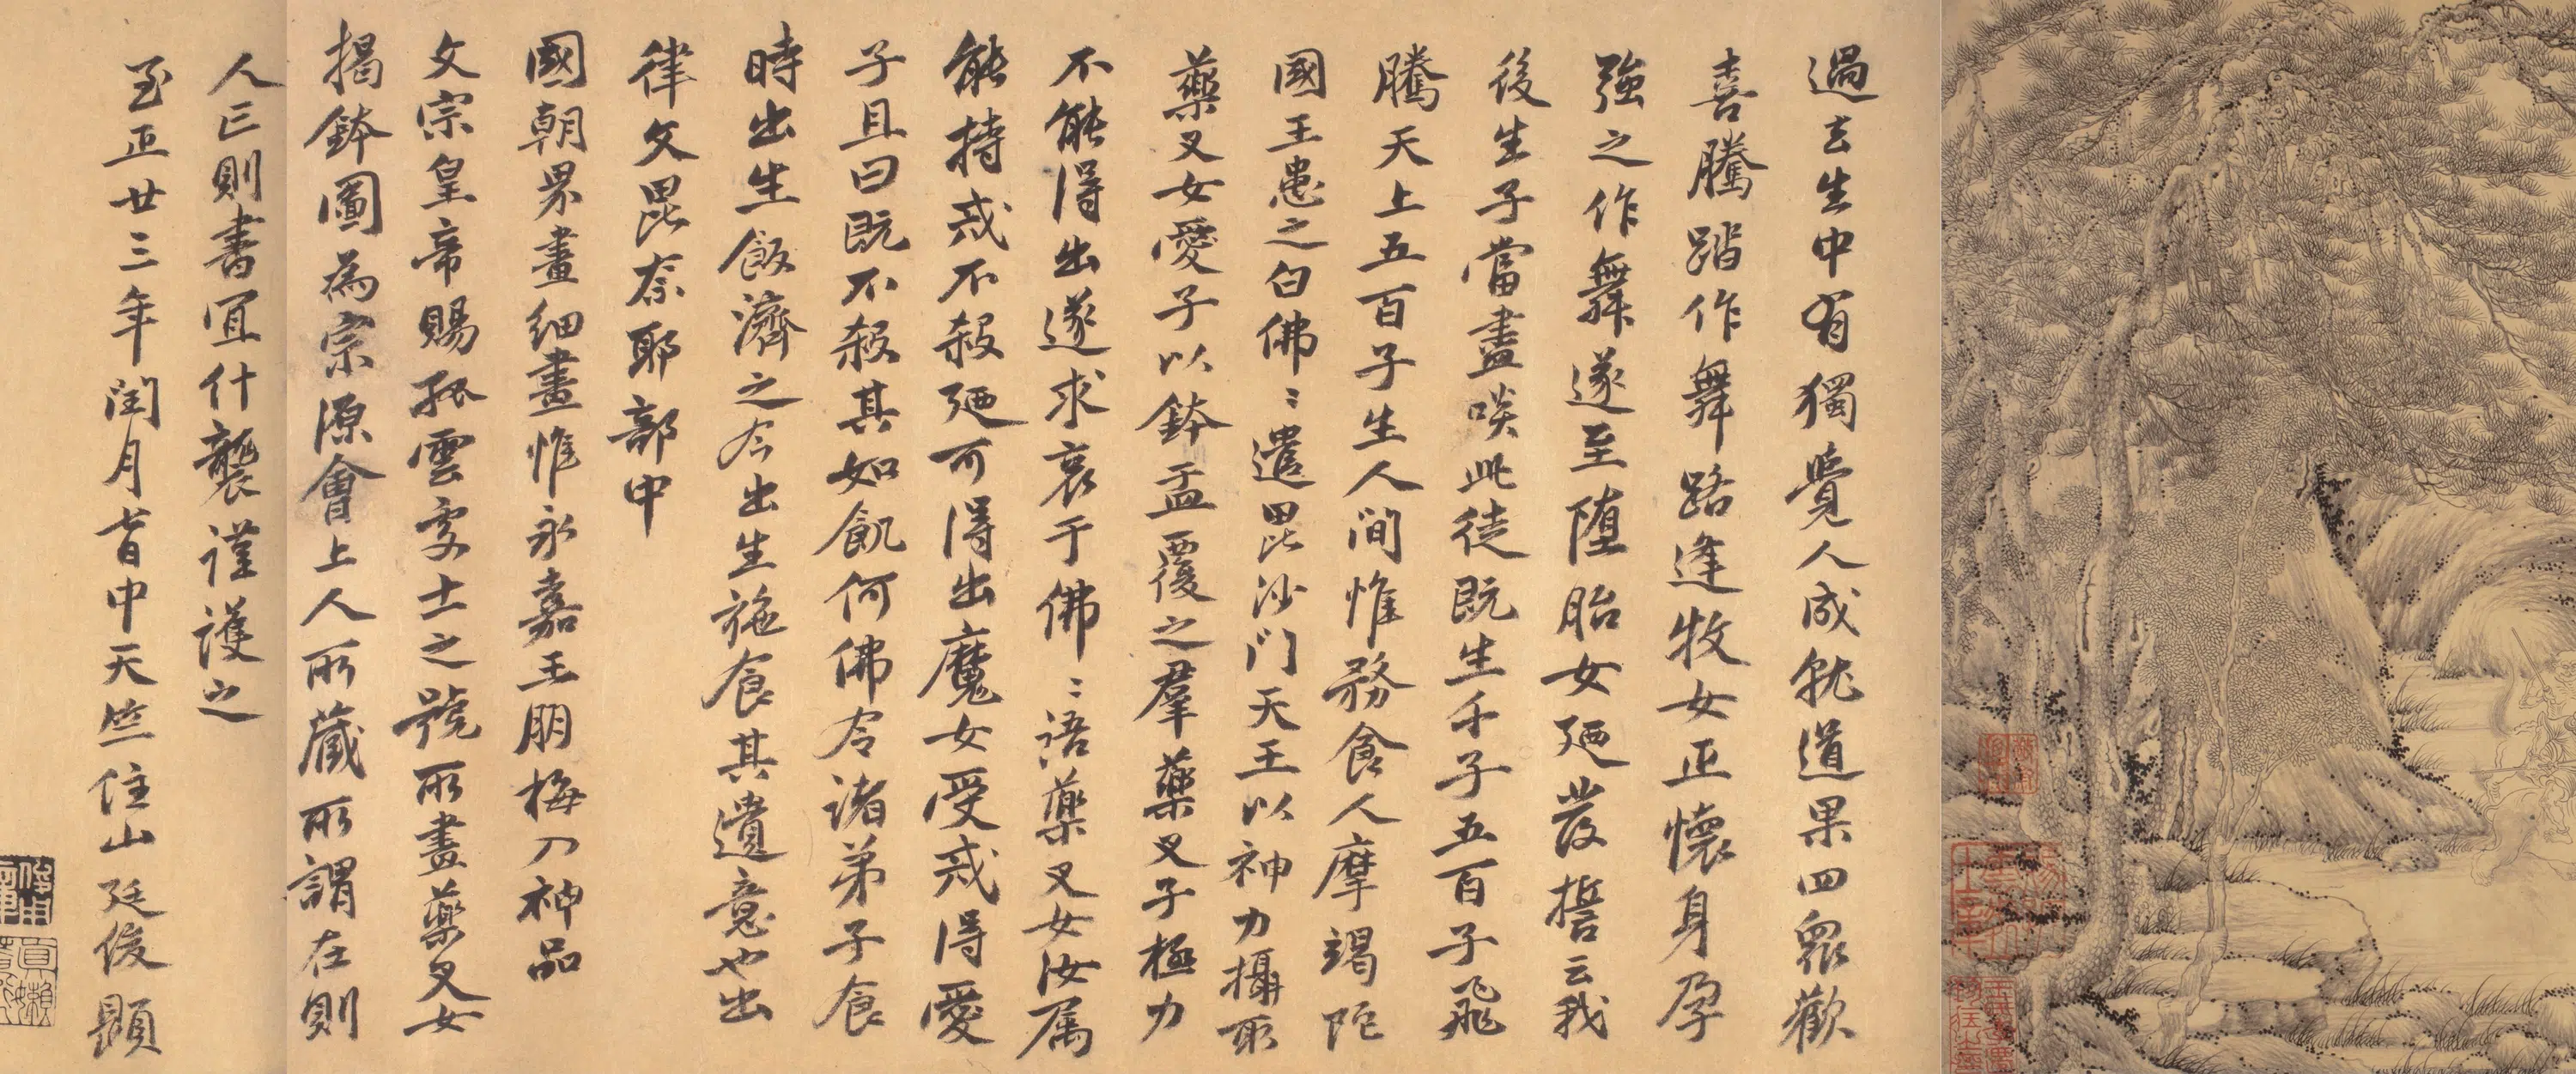 過去生中有獨覺人成就道果四眾歡
喜騰踏作舞路逢牧女正懷身孕
強之作舞遂至墮胎女廼發誓云我
後生子當盡啖此徒既生千子五百子飛
騰天上五百子生人間惟務食人摩竭陀
國王患之白佛〻遣毘沙门天王以神力攝取
藥叉女愛子以鉢盂覆之羣藥叉子極力
不能得出遂求哀于佛〻語藥叉女汝属
能持戒不殺廼可得出魔女受戒得愛
子且曰既不殺其如飢何佛令諸弟子食
時出生飯濟之今出生施食其遺意也出
律文毘奈耶部中
國朝界畫細畫惟永嘉王朋梅入神品
文宗皇帝賜孤雲處士之號所畫藥叉女
揭鉢圖為宗源會上人所藏所謂在則
人亡則書宜什襲謹護之
至正廿三年閏月首中天竺住山廷俊題